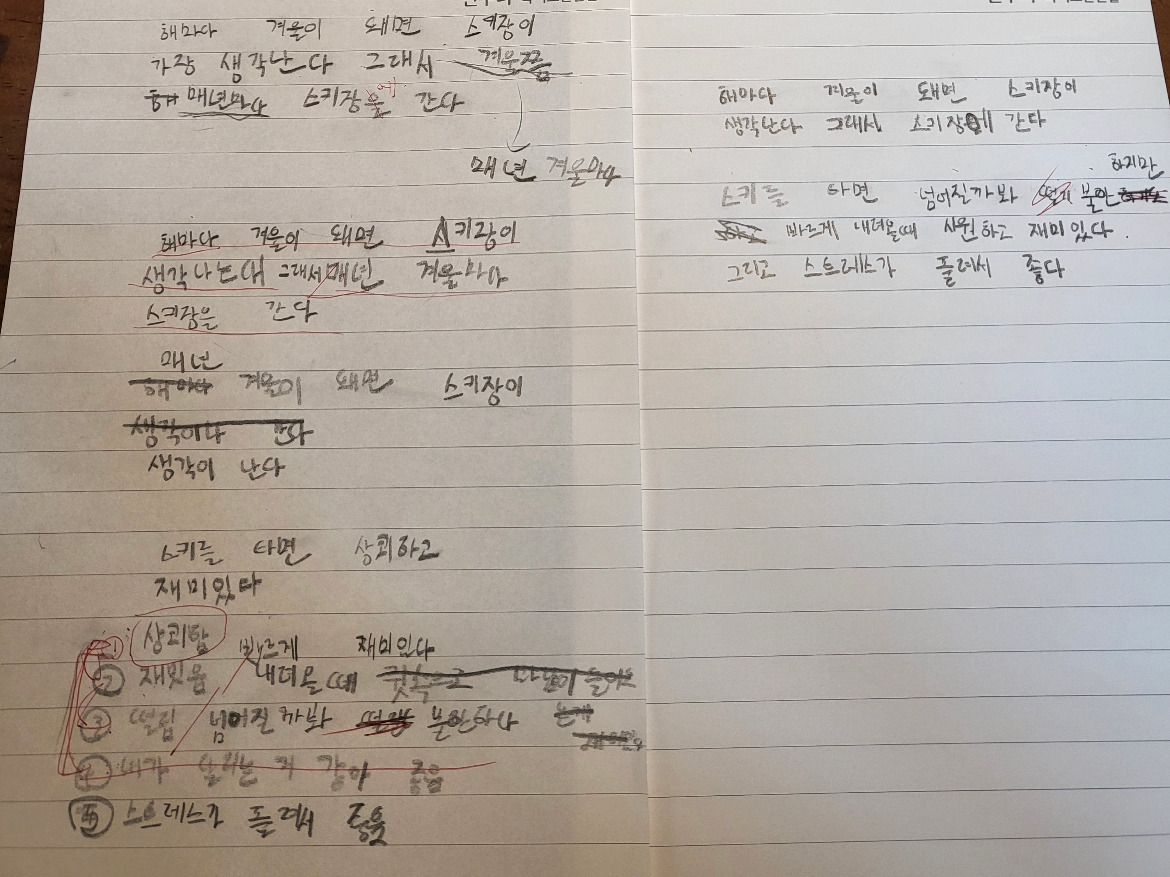 해마다 겨울이 돼면 스키장이
가장 생각난다 그래서 겨울
매년마다 스키장을에 간다
매년 겨울마다
해마다 겨울이 돼면 스키장이
생각나는데 그래서 매년 겨울마다
스키장을 간다
매년
해마다 겨울이 돼면 스키장이
생각이나 난다
생각이 난다
스키를 타면 상쾨하고
재미있다
① 상쾨함
빠르게 재미인다
② 재밌음 내려올때 귓속으로 바람이 들어
③ 떨림 넘어질까봐 떨림 불안하다
④ 내가 날리는 거 같아 좋음
⑤ 스트레스가 풀려서 좋음
해마다 겨울이 돼면 스키장이
생각난다 그래서 스키장에 간다
하지만
스키를 타면 넘어질까봐 떨리 불안
빠르게 내려올때 사원하고 재미있다.
그리고 스트레스가 풀레서 좋다